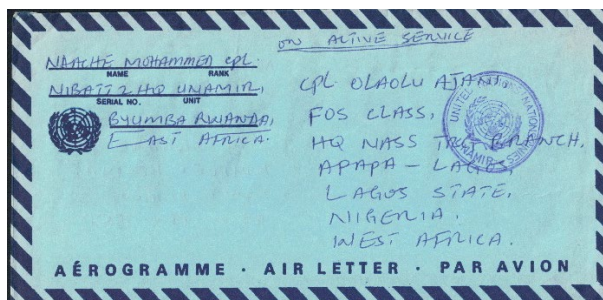 ON ACTIVE SERVICE
NAACHE MOHAMMED CPL.
NAME RANK
NIBATT 2 HQ UNAMIR,
SERIAL NO. UNIT
BYUMBA RWANDA,
EAST AFRICA.
CPL OLAOLU AJANI
FOS CLASS,
HQ NASS TRG BRANCH,
APAPA - LAGOS,
LAGOS STATE,
NIGERIA,
WEST AFRICA.
UNITED NATIONS NATIONS UNIES
UNAMIR
AÉROGRAMME · AIR LETTER · PAR AVION